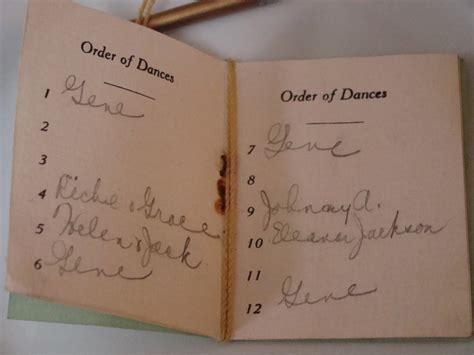 Order of Dances
1 Gene
2
3
4 Richie & Grace
5 Helen & Jack
6 Gene
Order of Dances
7 Gene
8
9 Johnny A.
10 Eleanor Jackson
11
12 Gene